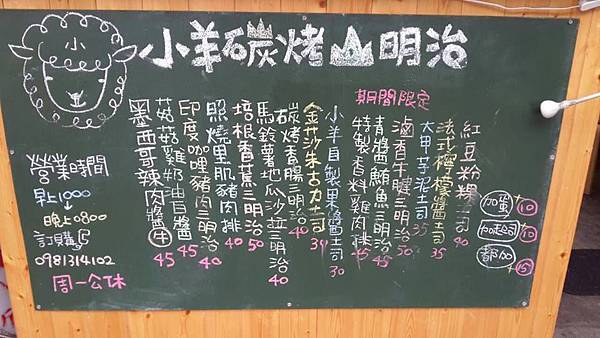 小羊碳烤山明治
小
營業時間
早上1000
晚上0800
訂購
0981314102
周一公休
墨西哥辣肉醬 牛 45
菇菇雞奶油白醬 45
印度咖哩豬肉三明治 40
照燒里肌豬肉排 40
培根香蕉三明治 50
馬鈴薯地瓜沙拉三明治 40
碳烤香腸三明治 40
金莎朱古力土司 30
小羊自製果醬土司 30
期間限定
特製香料雞肉排 45
青醬鮪魚三明治 45
滷香牛腱三明治 50
大甲芋泥土司 35
法式檸檬醬土司 35
紅豆粉粿土司 40
加蛋 +10
加起司 +10
都加 +15